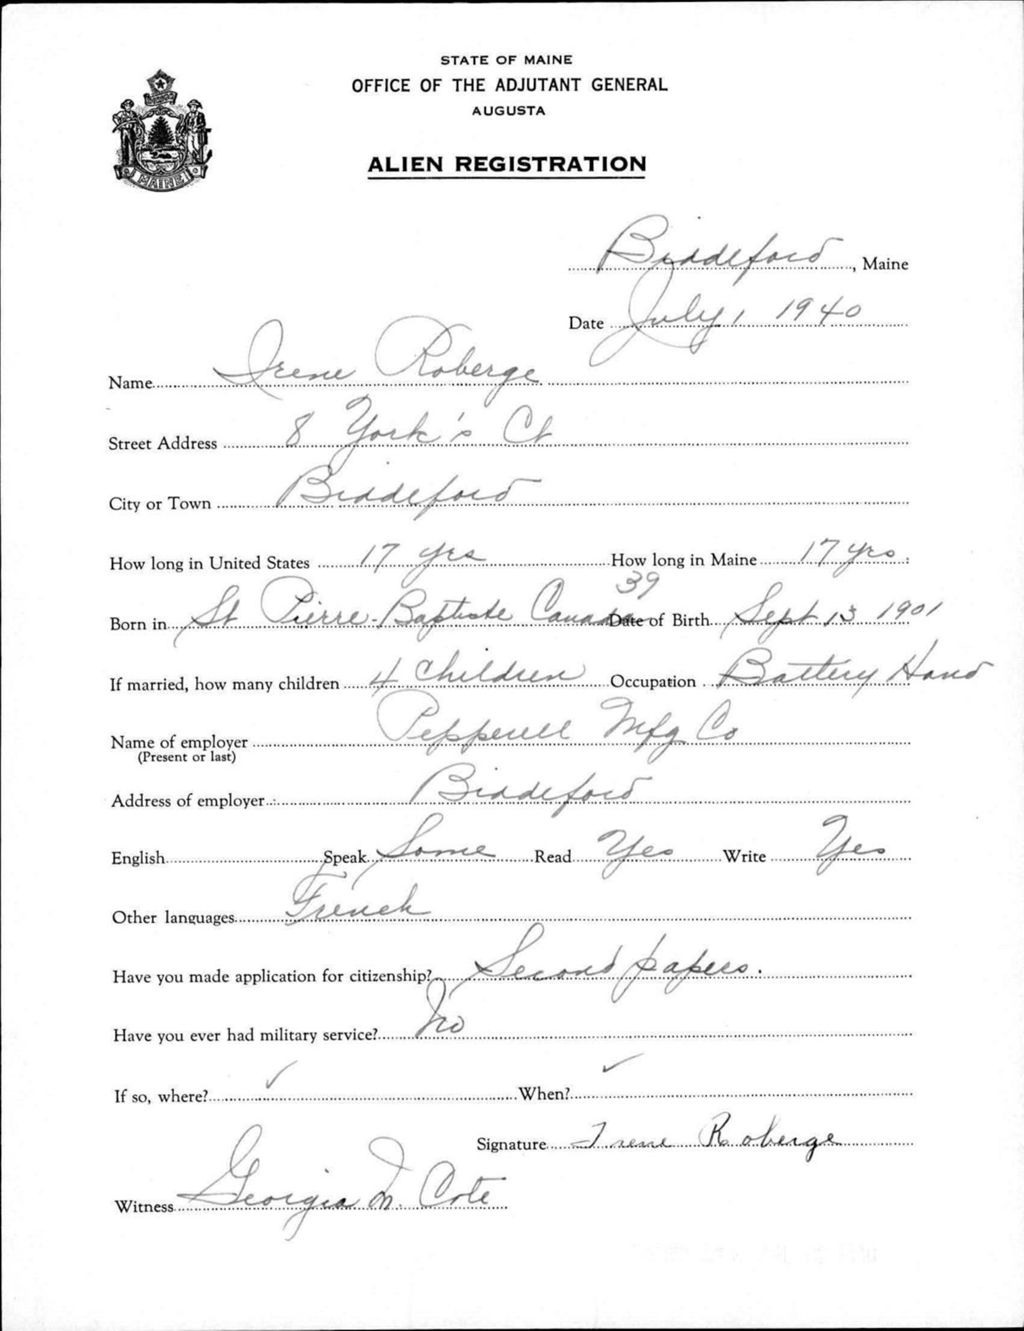 STATE OF MAINE
OFFICE OF THE ADJUTANT GENERAL
AUGUSTA
MAINE
ALIEN REGISTRATION
Biddeford, Maine
Date July 1, 1940
Name Irene Roberge
Street Address 8 York's Ct
City or Town Biddeford
How long in United States 17 yrs How long in Maine 17 yrs
39
Born in St Pierre-Baptiste Canada Date of Birth Sept 13 1901
If married, how many children 4 Children Occupation Battery Hand
Name of employer Pepperell Mfg Co
(Present or last)
Address of employer Biddeford
English Speak Some Read Yes Write Yes
Other languages French
Have you made application for citizenship? Second papers.
Have you ever had military service? No
If so, where? ✓ When? ✓
Signature Irene Roberge
Witness Georgia M. Cote